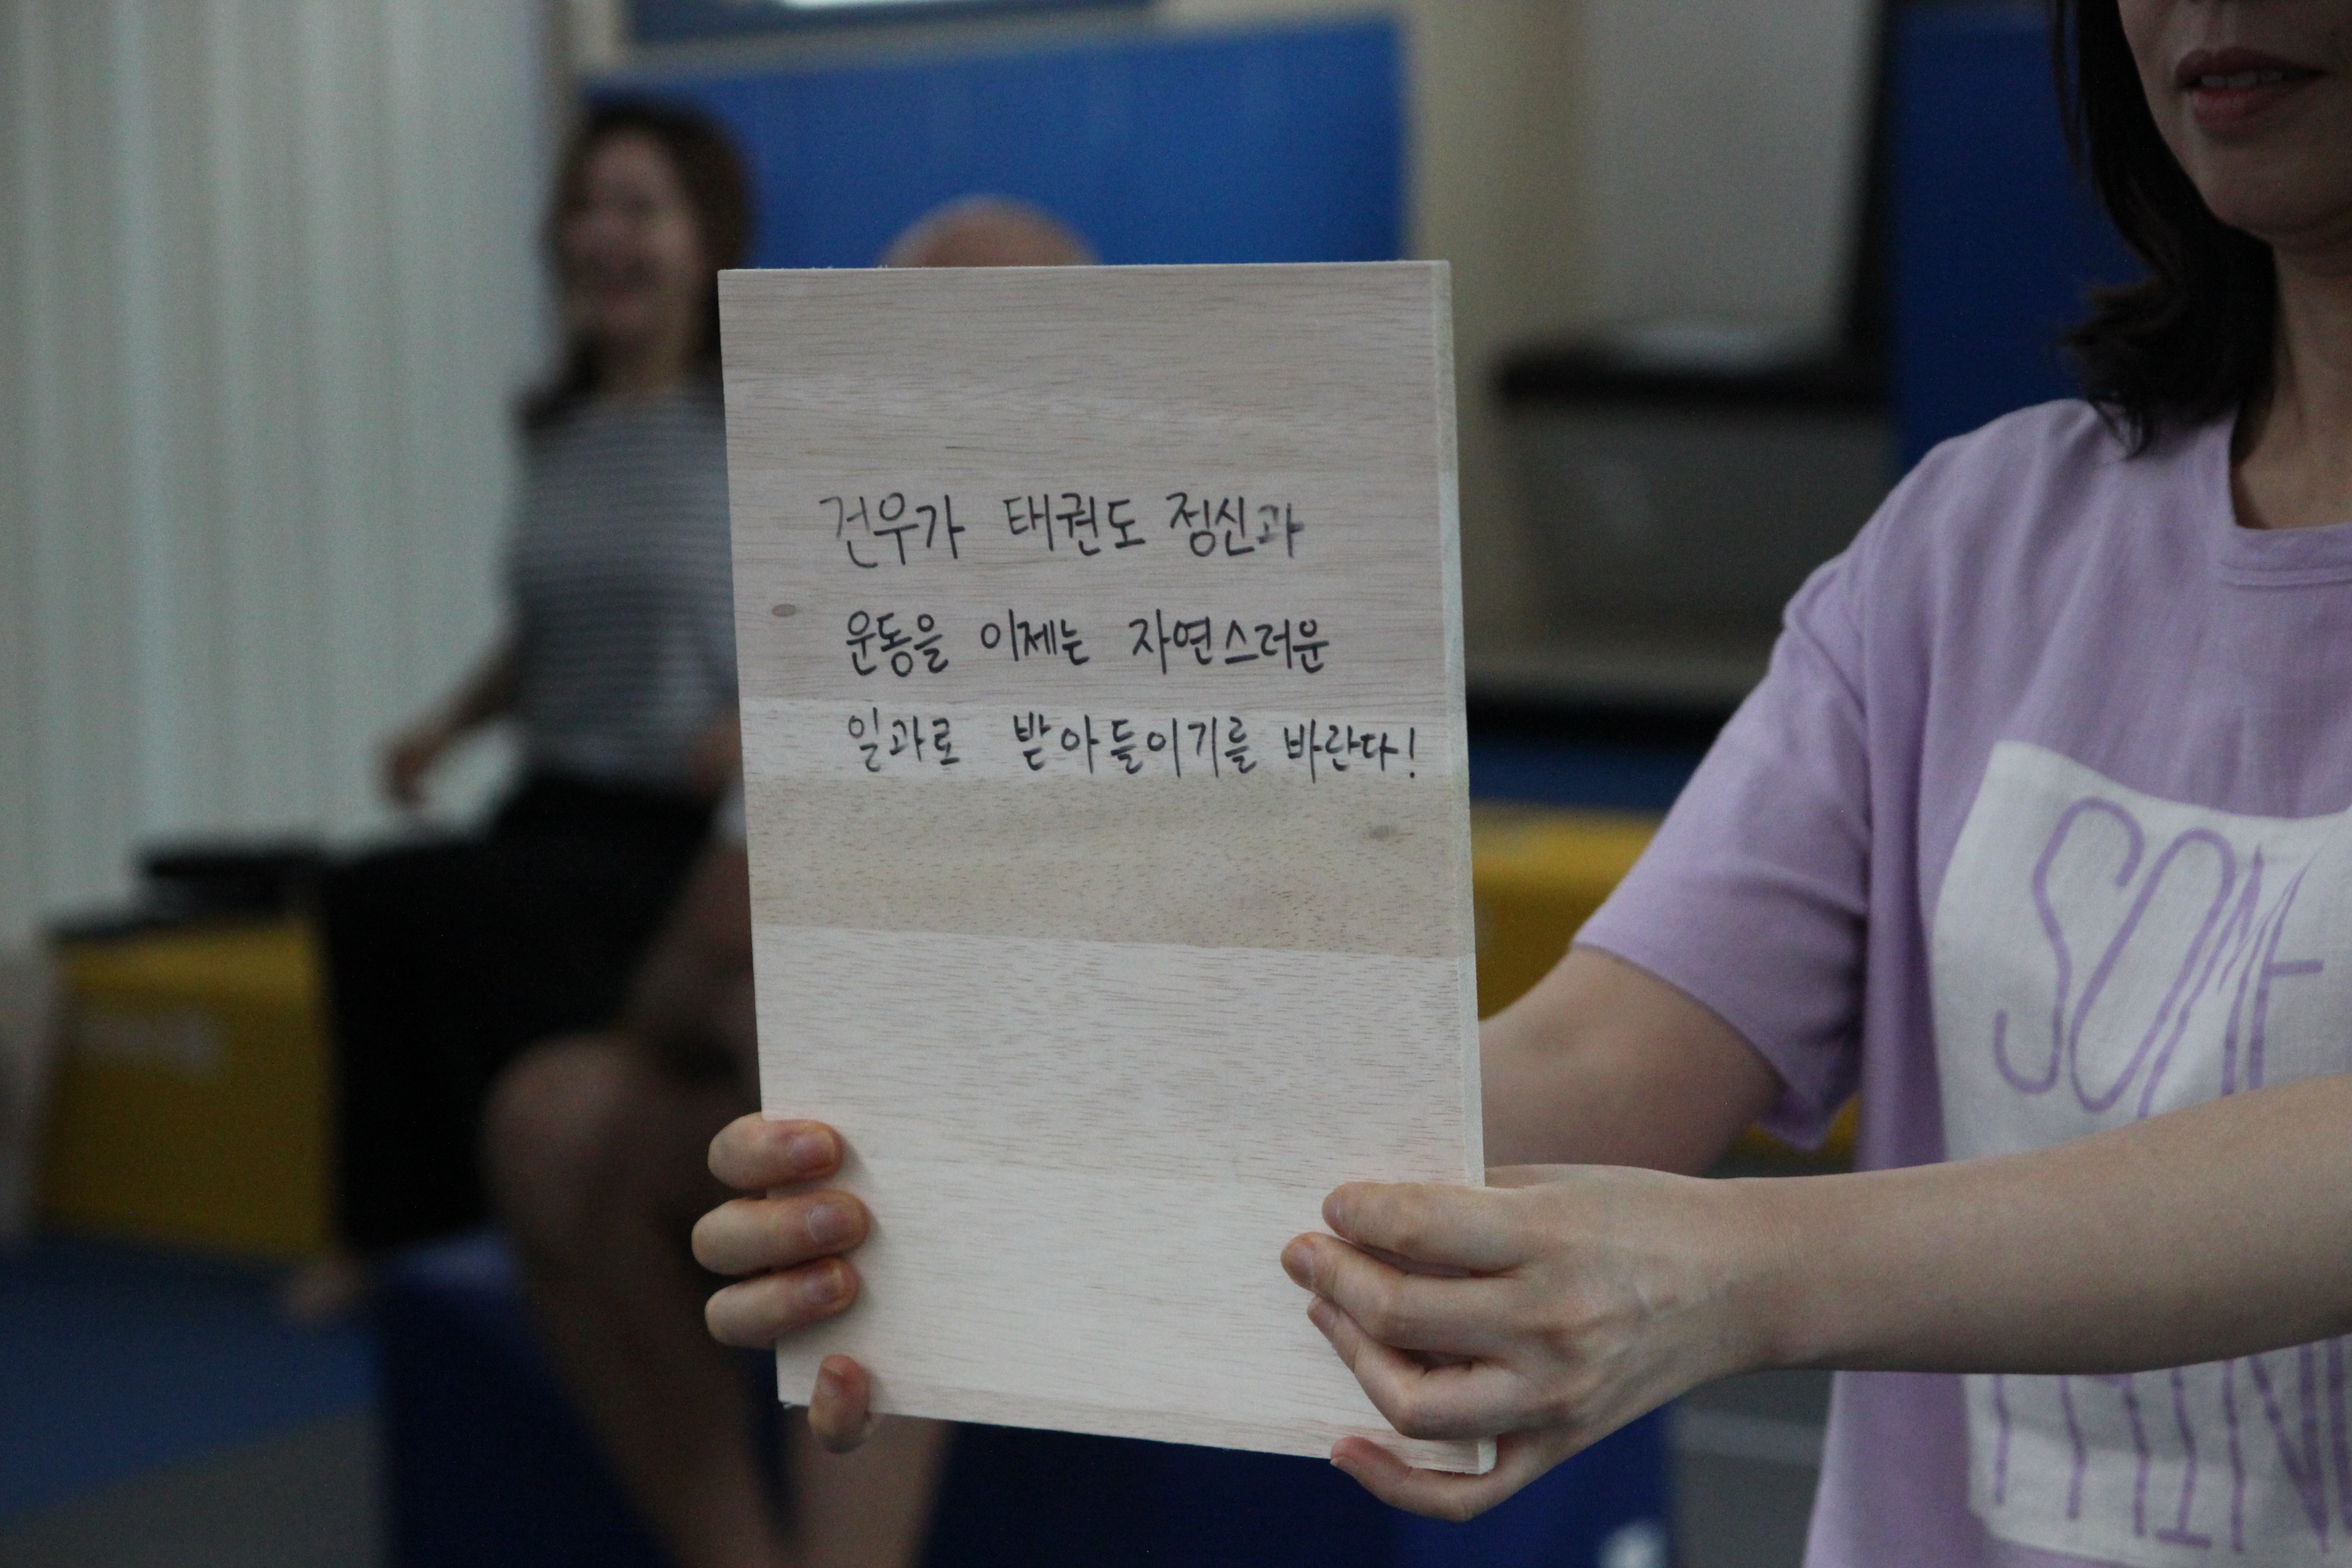 건우가 태권도 정신과
운동을 이제는 자연스러운
일과로 받아들이기를 바란다!
SOME
THIN